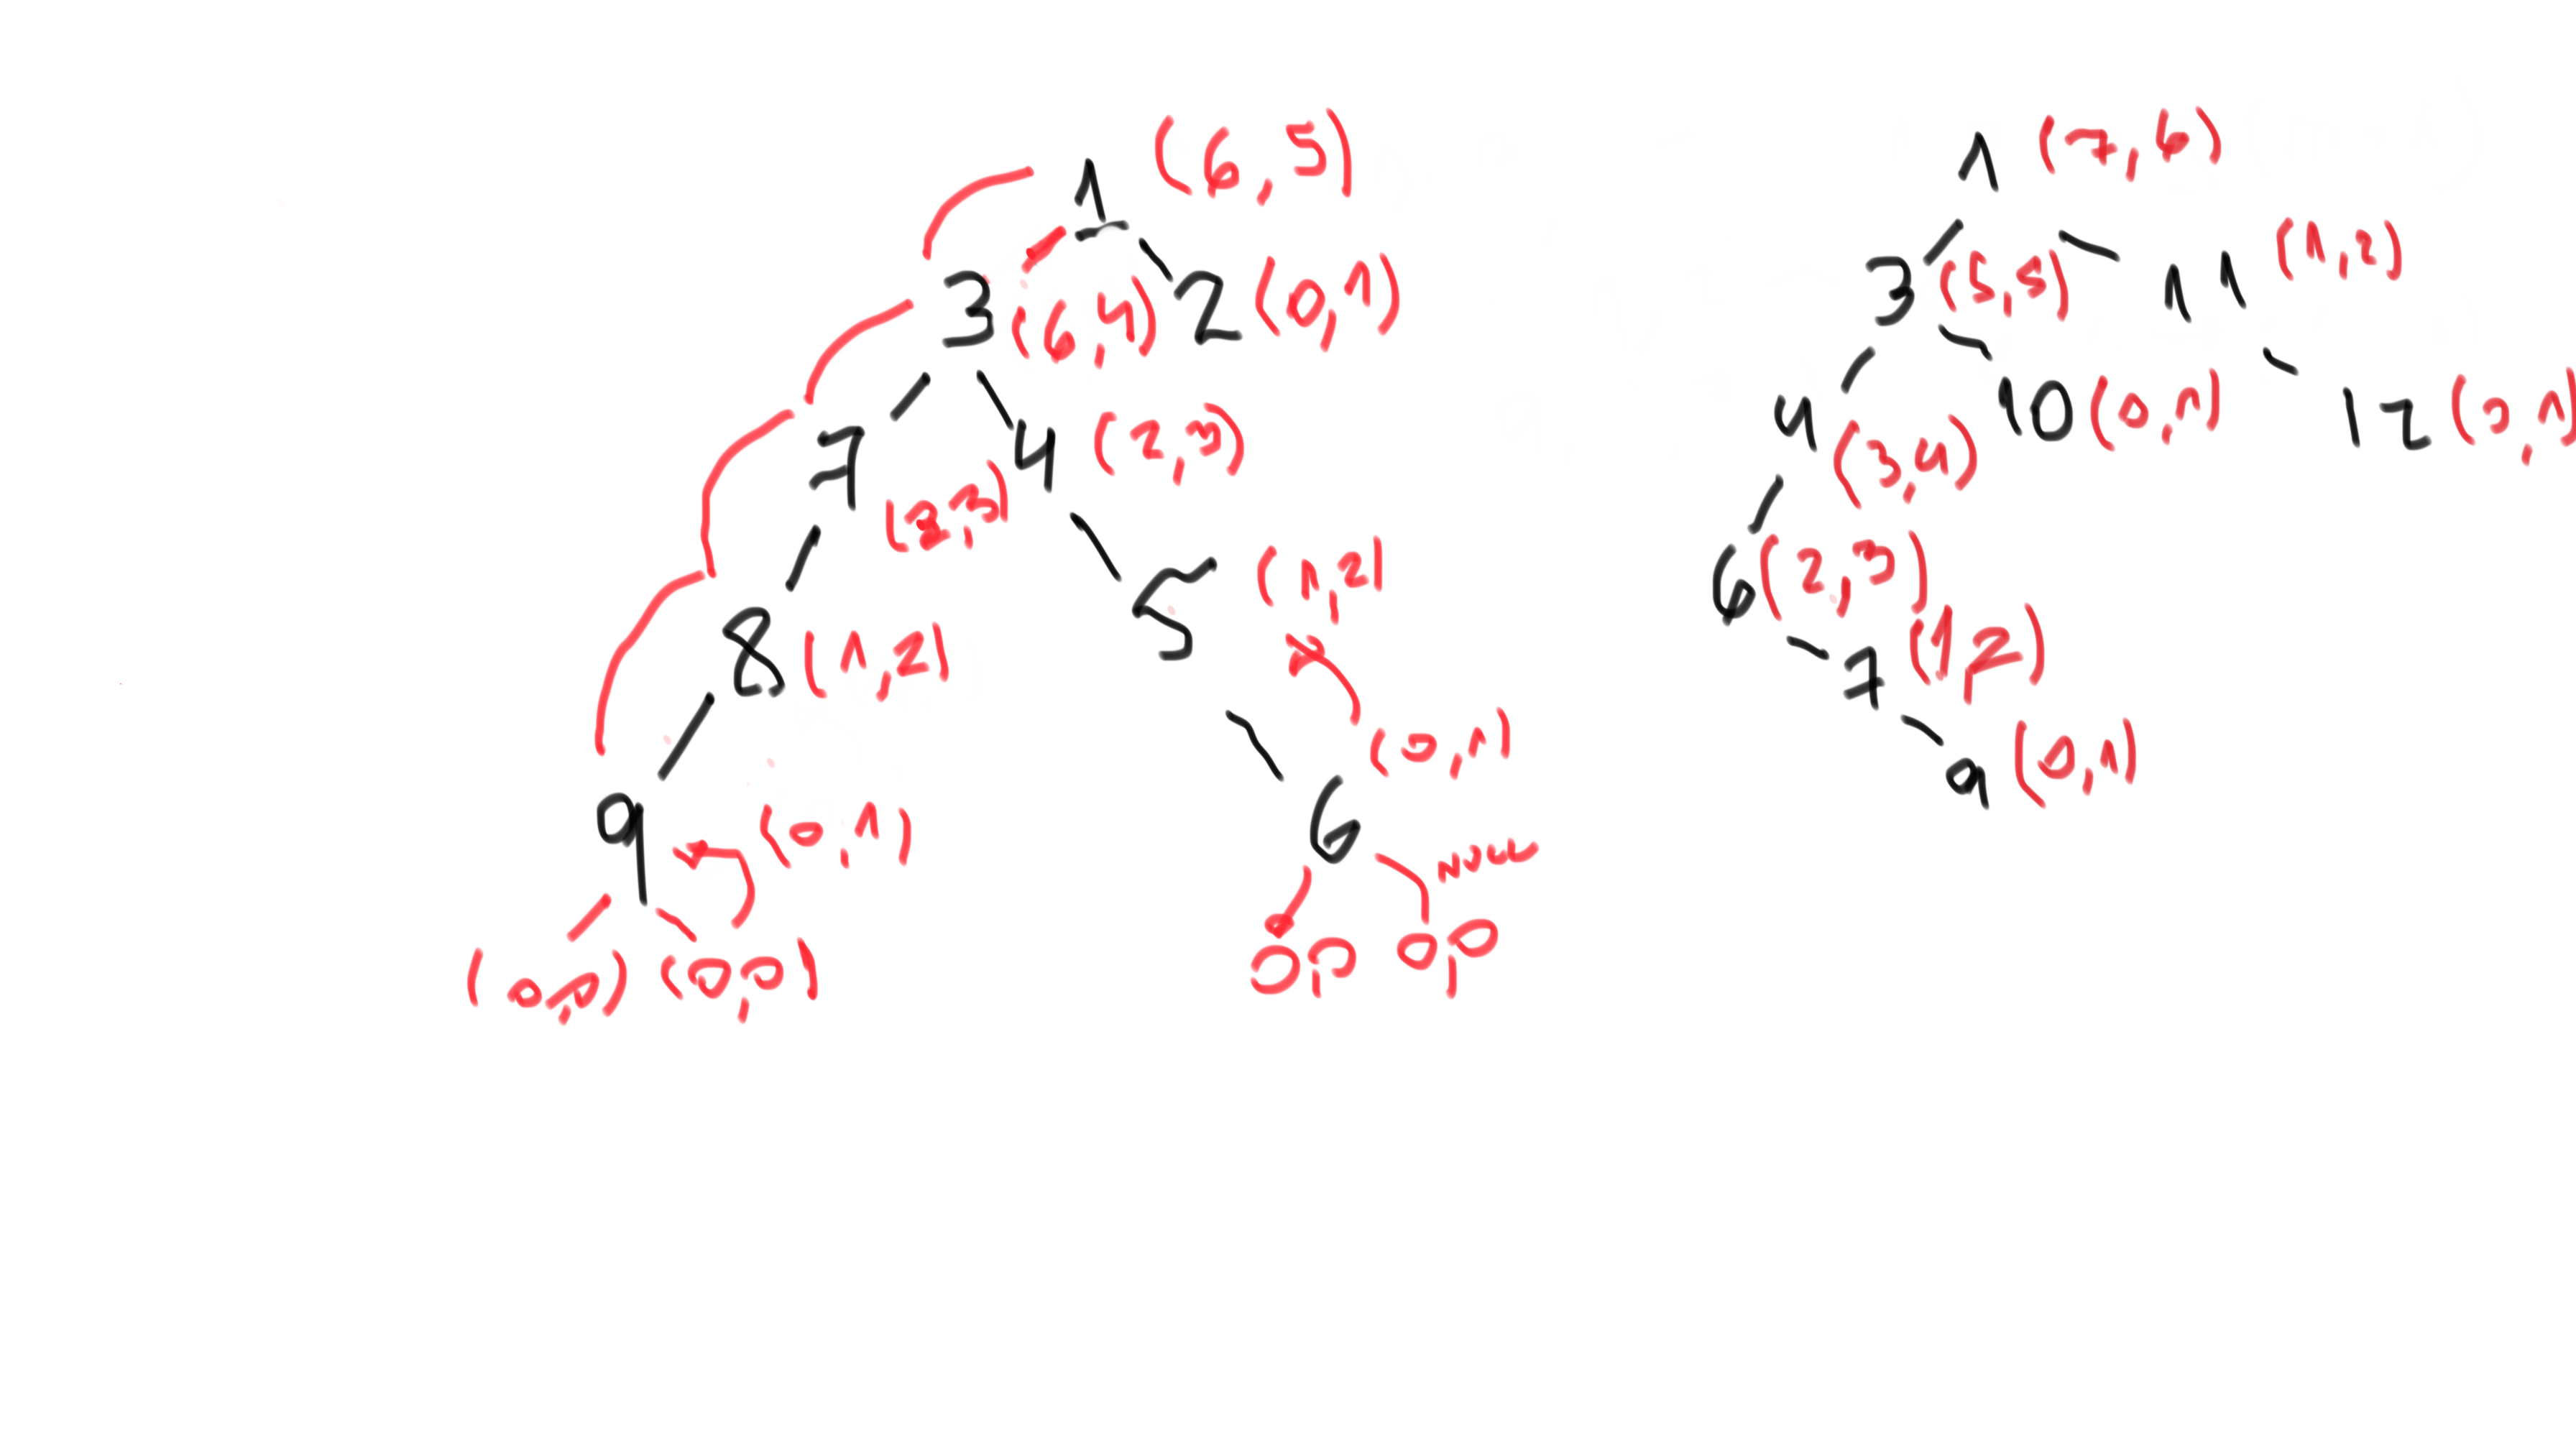 1 (6,5)
3 (6,4) 2 (0,1)
7 (2,3) 4 (2,3)
8 (1,2) 5 (1,2)
9 (0,1) 6 (0,1)
NULL
(0,0) (0,0) 0,0 0,0
1 (7,6)
3 (5,5) 11 (1,2)
4 (3,4) 10 (0,1) 12 (0,1)
6 (2,3)
7 (1,2)
9 (0,1)